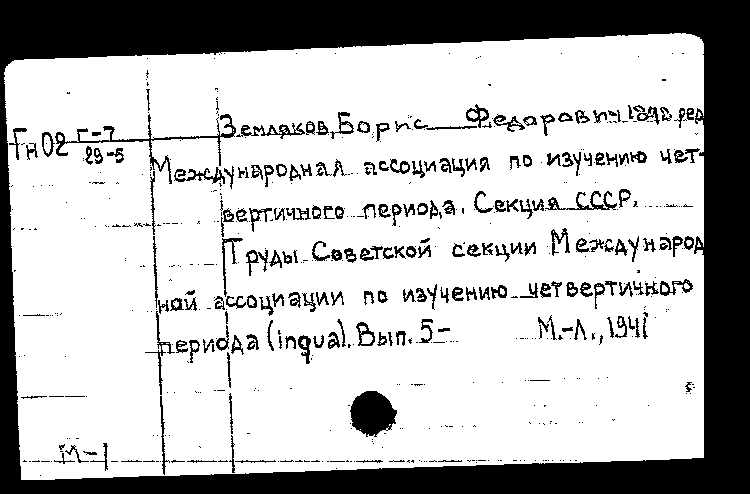 Земляков, Борис Федорович 1898 ред
Гн02 Г-7
29-5
Международная ассоциация по изучению чет-
вертичного периода. Секция СССР.
Труды Советской секции Международ
ной ассоциации по изучению четвертичного
периода (inqua). Вып. 5- М.-Л., 1941
М-1